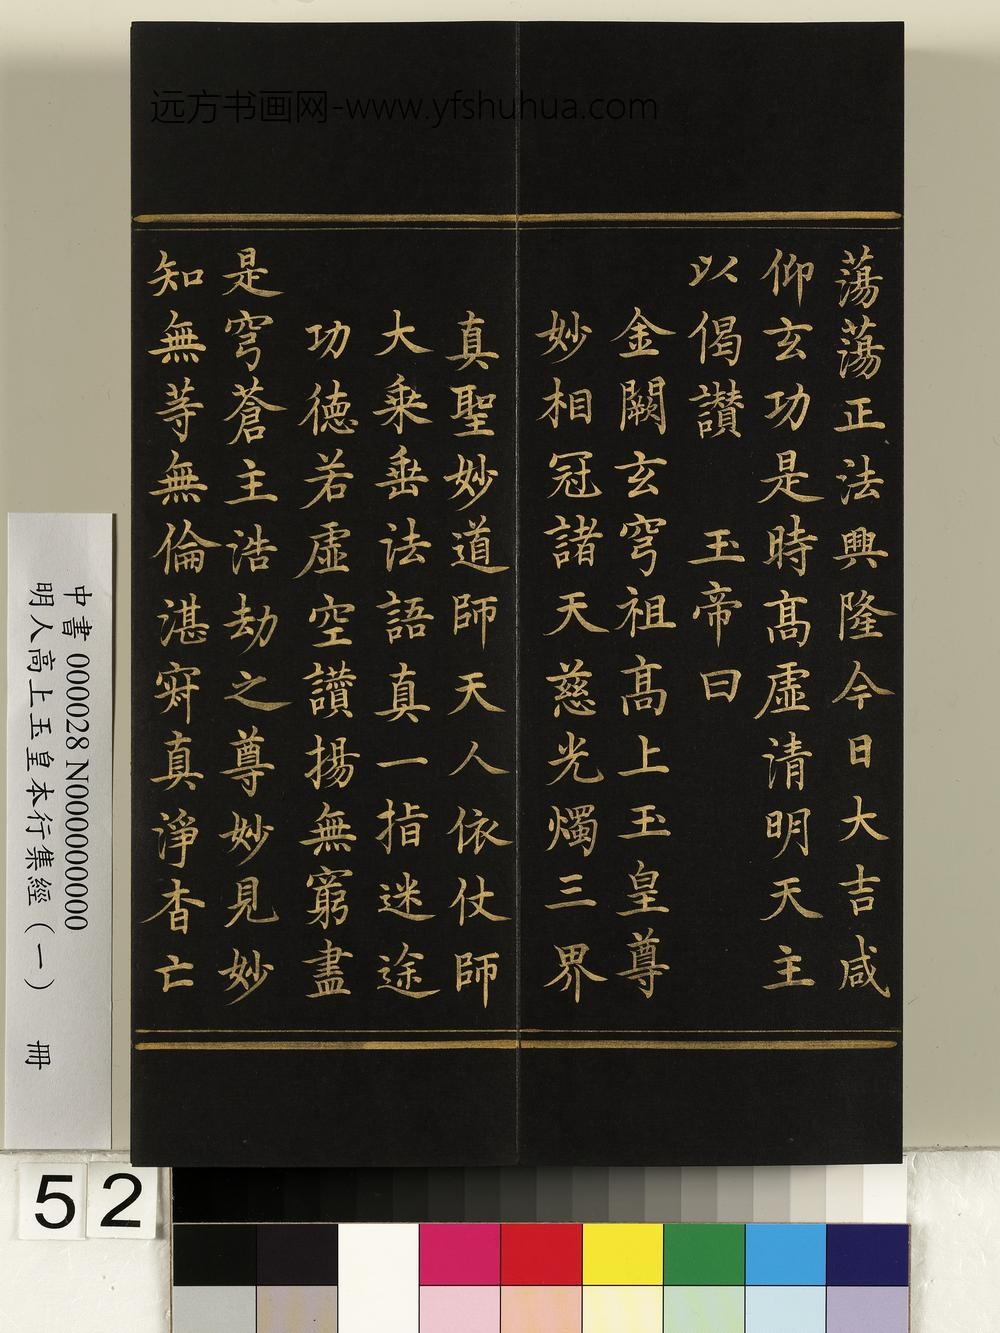 远方书画网-www.yfshuhua.com
蕩蕩正法興隆今日大吉咸
仰玄功是時髙虛清明天主
以偈讃　玉帝曰
金闕玄穹祖髙上玉皇尊
妙相冠諸天慈光燭三界
真聖妙道師天人依仗師
大乘垂法語真一指迷途
功德若虛空讃揚無窮盡
是穹蒼主浩劫之尊妙見妙
知無等無倫湛寂真淨杳亡
中書 000028 N000000000
明人高上玉皇本行集經（一） 冊
52